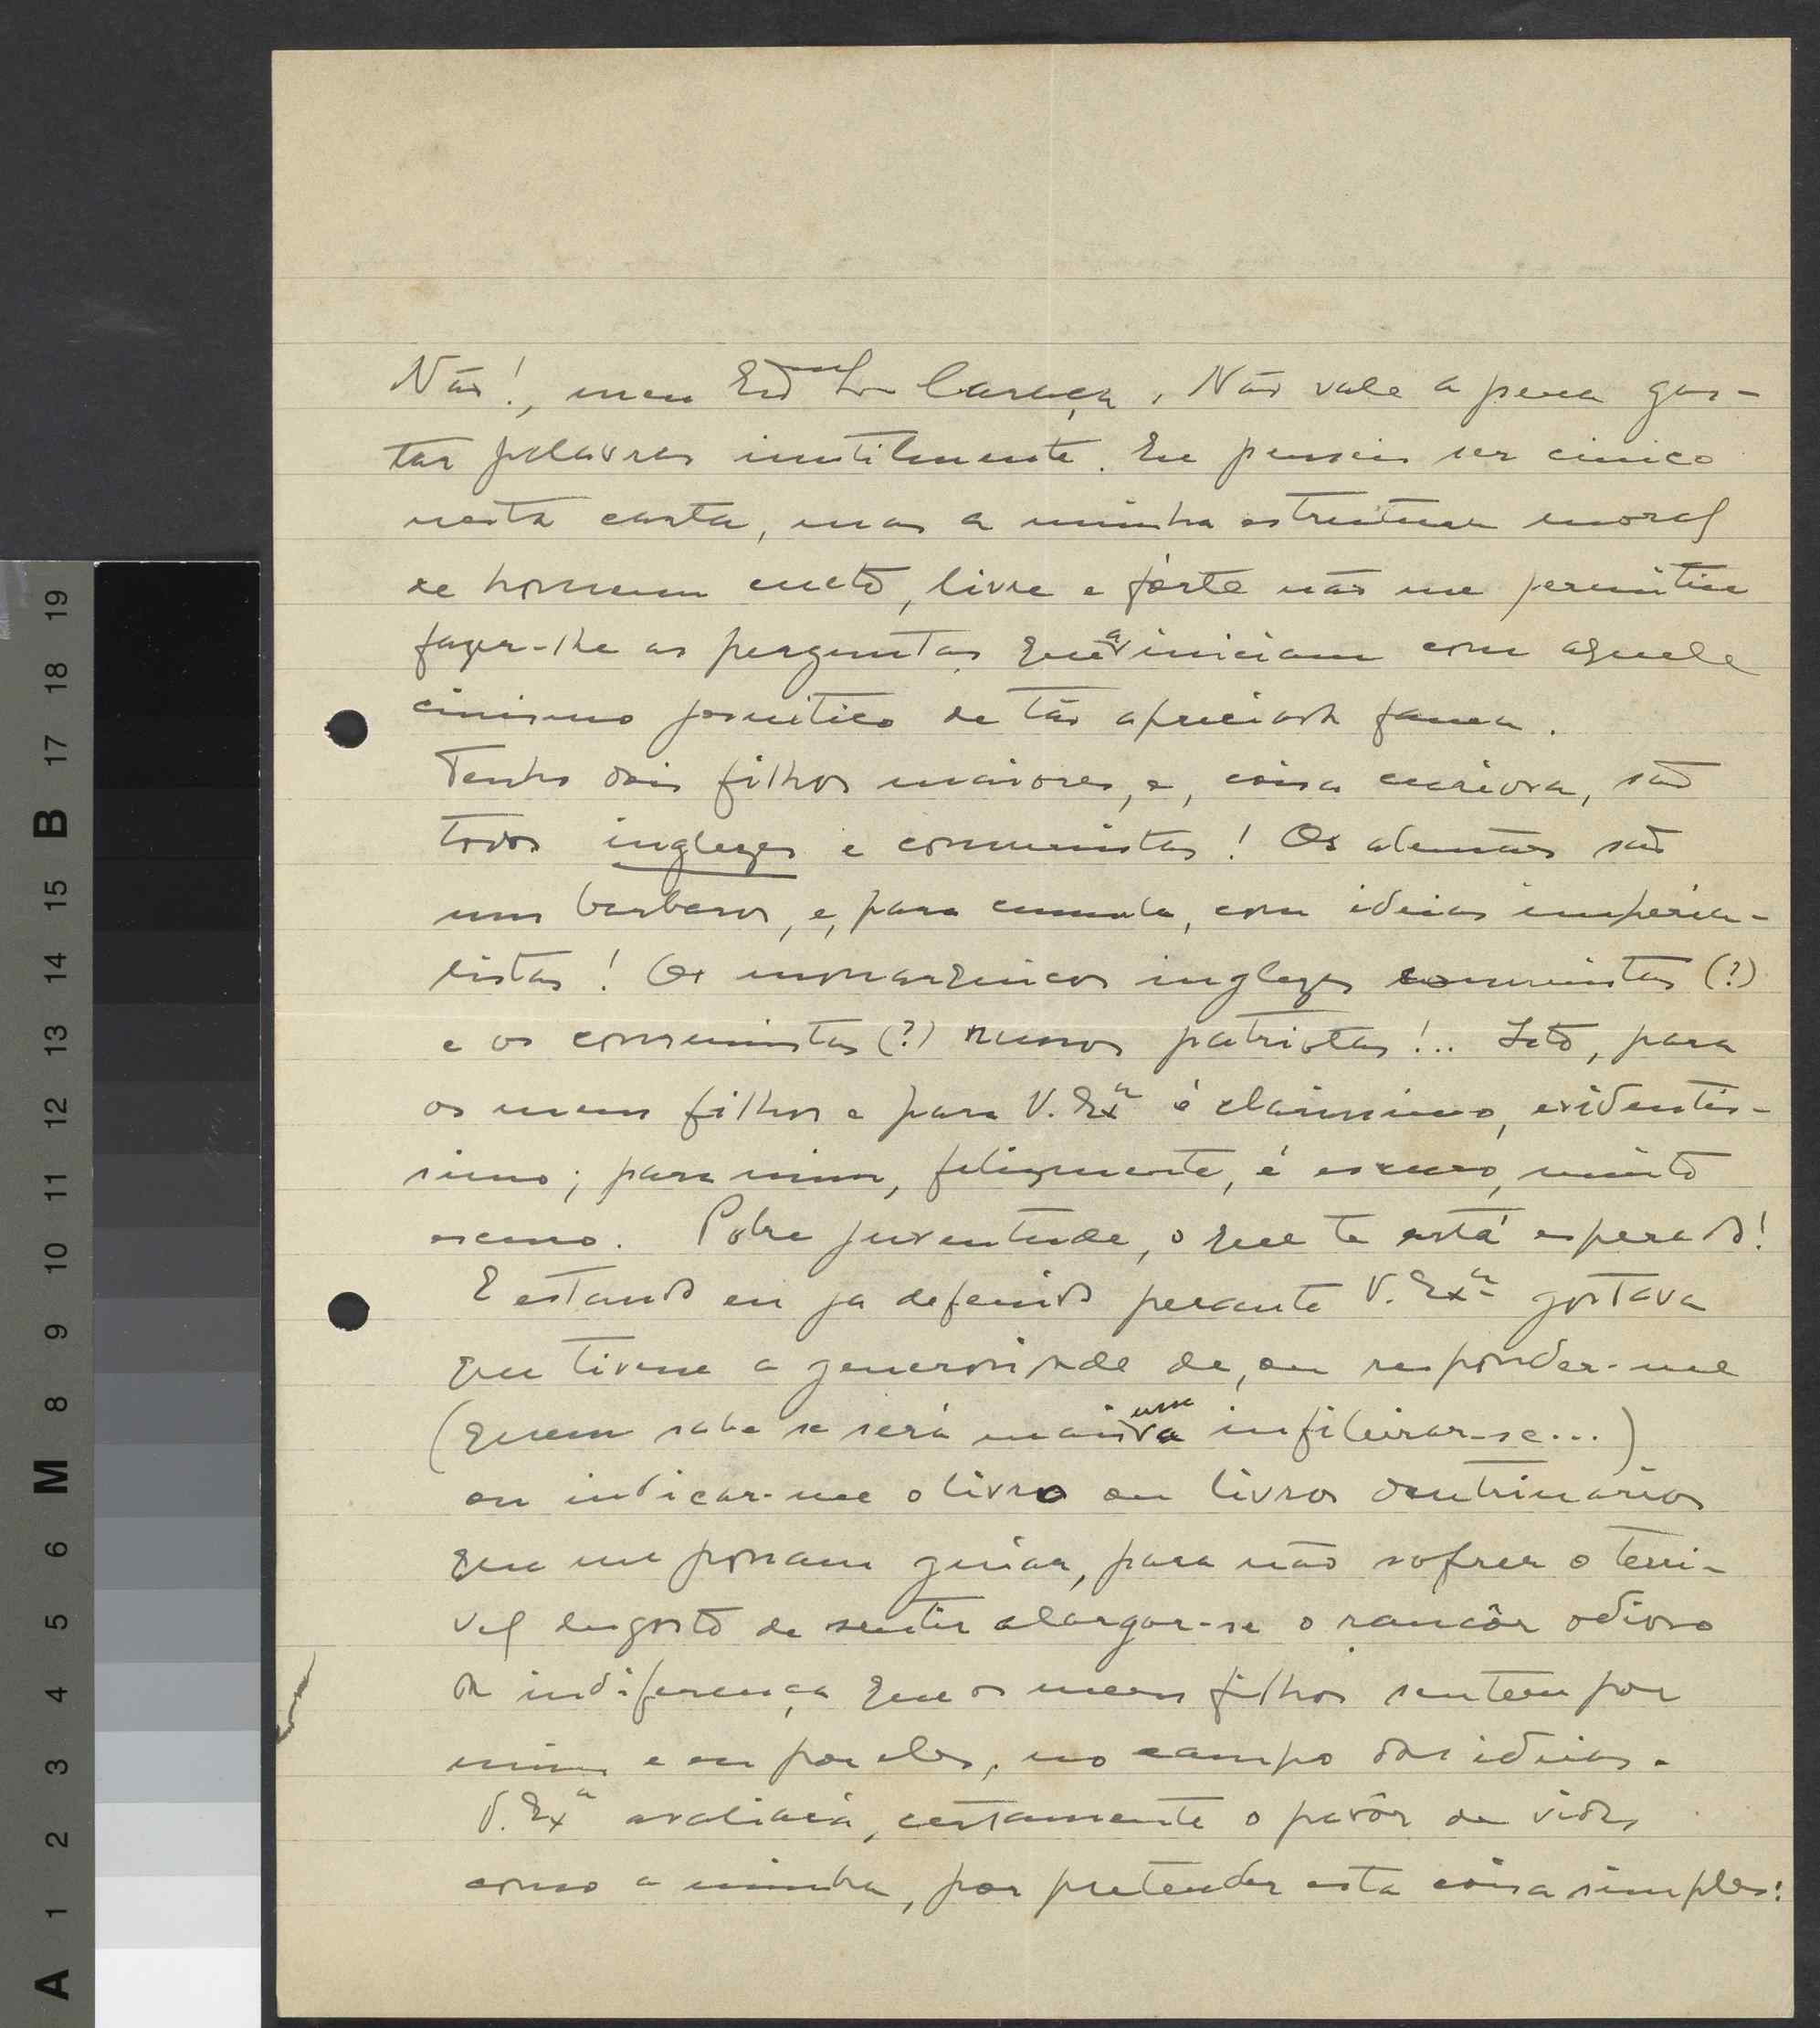 Não!, meu Exmo Snr Caraça. Não vale a pena gas-
tar palavras inutilmente. Eu pensei ser cinico
nesta carta, mas a minha estrutura moral
de homem recto, livre e fórte não me permitiu
fazer-lhe as perguntas que a iniciam com aquele
cinismo jesuitico de tão apreciada fama.
Tenho dois filhos maiores, e, coisa curiosa, são
todos inglezes e comunistas! Os alemães são
uns barbaros, e, para cumulo, com ideias imperia-
listas! Os monarquicos inglezes comunistas (?)
e os comunistas (?) russos patriotas!.. Isto, para
os meus filhos e para V. Exa é clarissimo, evidentis-
simo; para mim, felizmente, é escuro, muito
escuro. Pobre juventude, o que te está esperado!
E estando eu ja defenido perante V. Exa gostava
que tivesse a generosidade de, ou responder-me
(quem sabe se será mais um a infileirar-se...)
ou indicar-me o livro ou livros doutrinários
que me possam guiar, para não sofrer o terri-
vel desgosto de sentir alargar-se o rancôr odioso
da indiferença que os meus filhos sentem por
mim e eu por eles, no campo das ideias.
V. Exa avaliará, certamente o pavôr da vida,
como a minha, por pretender esta coisa simples:
A 1 2 3 4 5 6 M 8 9 10 11 12 13 14 15 B 17 18 19